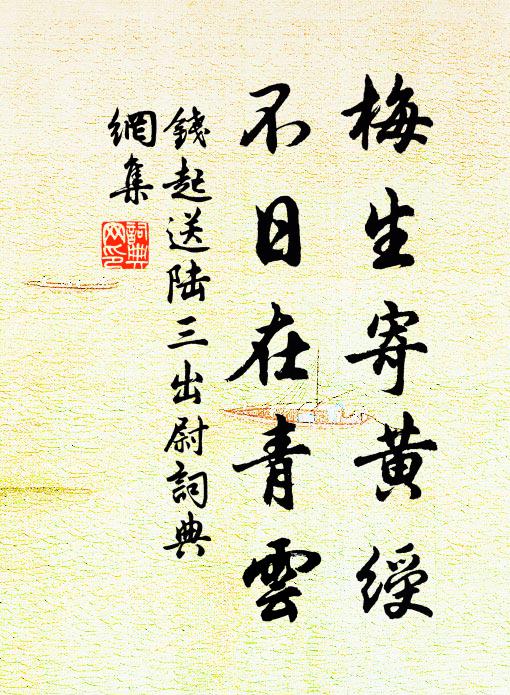 梅生寄黄綬
不日在青雲
錢起送陆三出尉詞典
網集
詞典
网印